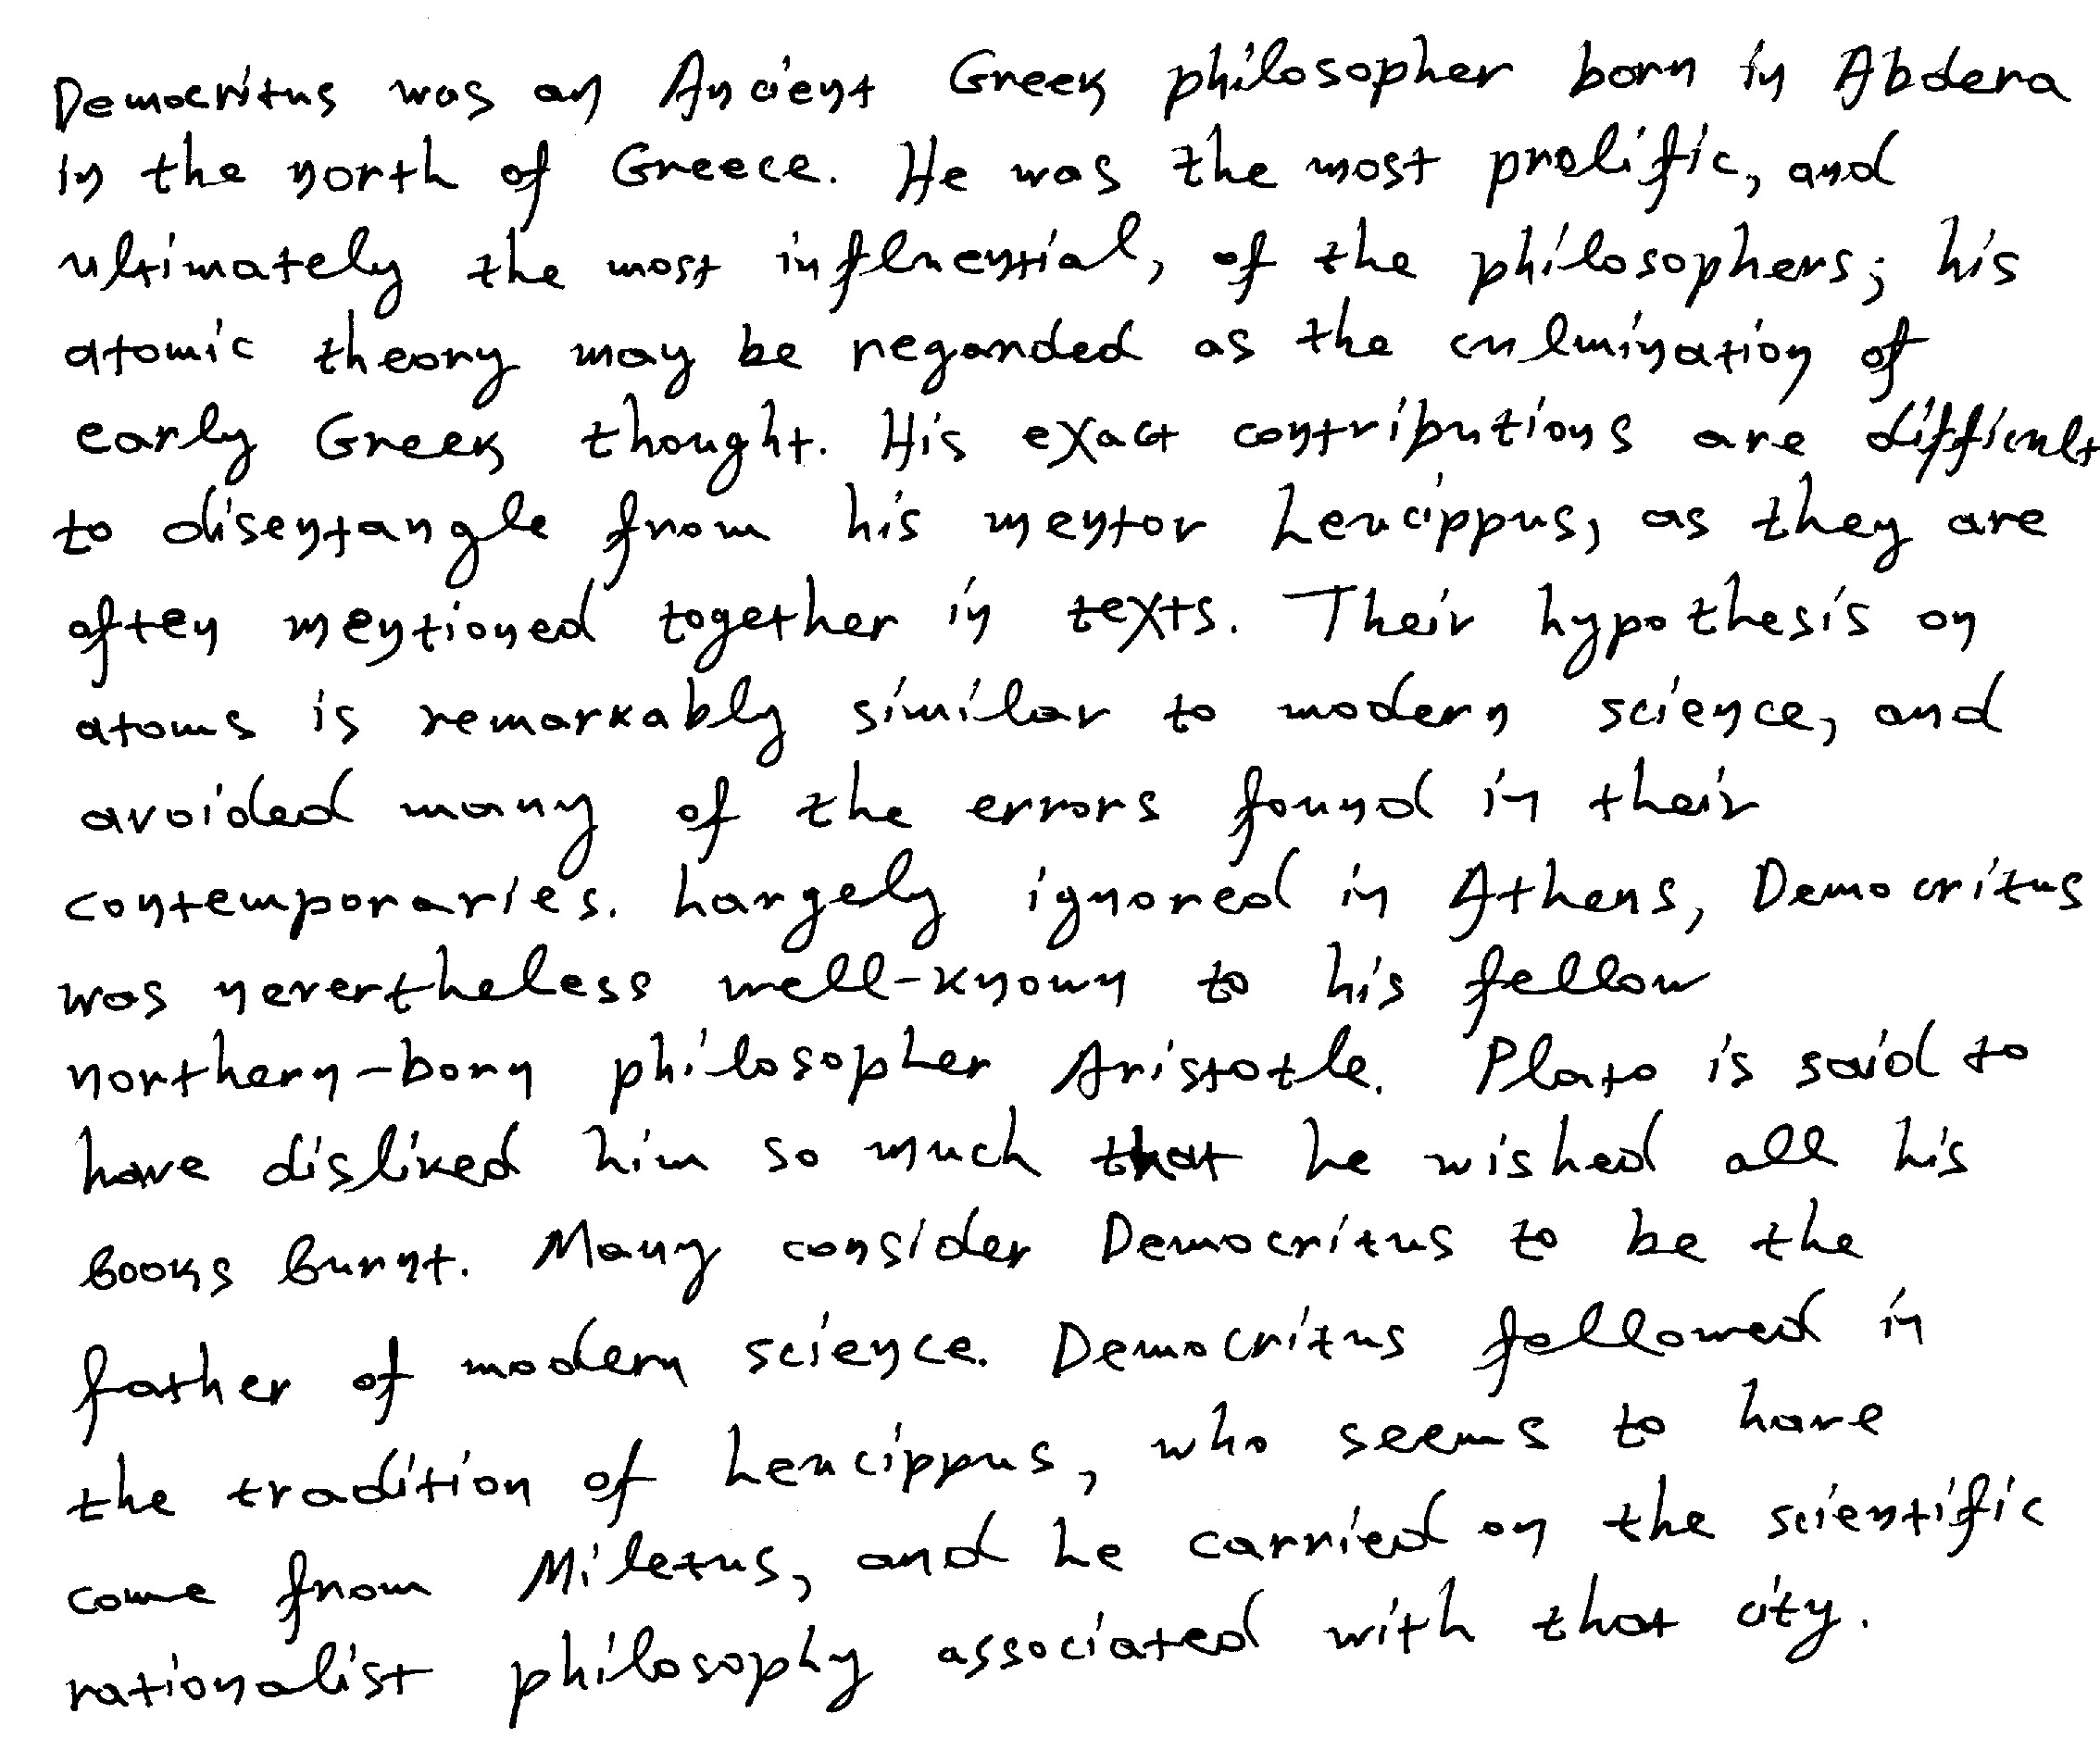 Democritus was an Ancient Greek philosopher born in Abdera
in the north of Greece. He was the most prolific, and
ultimately the most influential, of the philosophers; his
atomic theory may be regarded as the culmination of
early Greek thought. His exact contributions are difficult
to disentangle from his mentor Leucippus, as they are
often mentioned together in texts. Their hypothesis on
atoms is remarkably similar to modern science, and
avoided many of the errors found in their
contemporaries. Largely ignored in Athens, Democritus
was nevertheless well-known to his fellow
northern-born philosopher Aristotle. Plato is said to
have disliked him so much that he wished all his
books burnt. Many consider Democritus to be the
father of modern science. Democritus followed in
the tradition of Leucippus, who seems to have
come from Miletus, and he carried on the scientific
rationalist philosophy associated with that city.